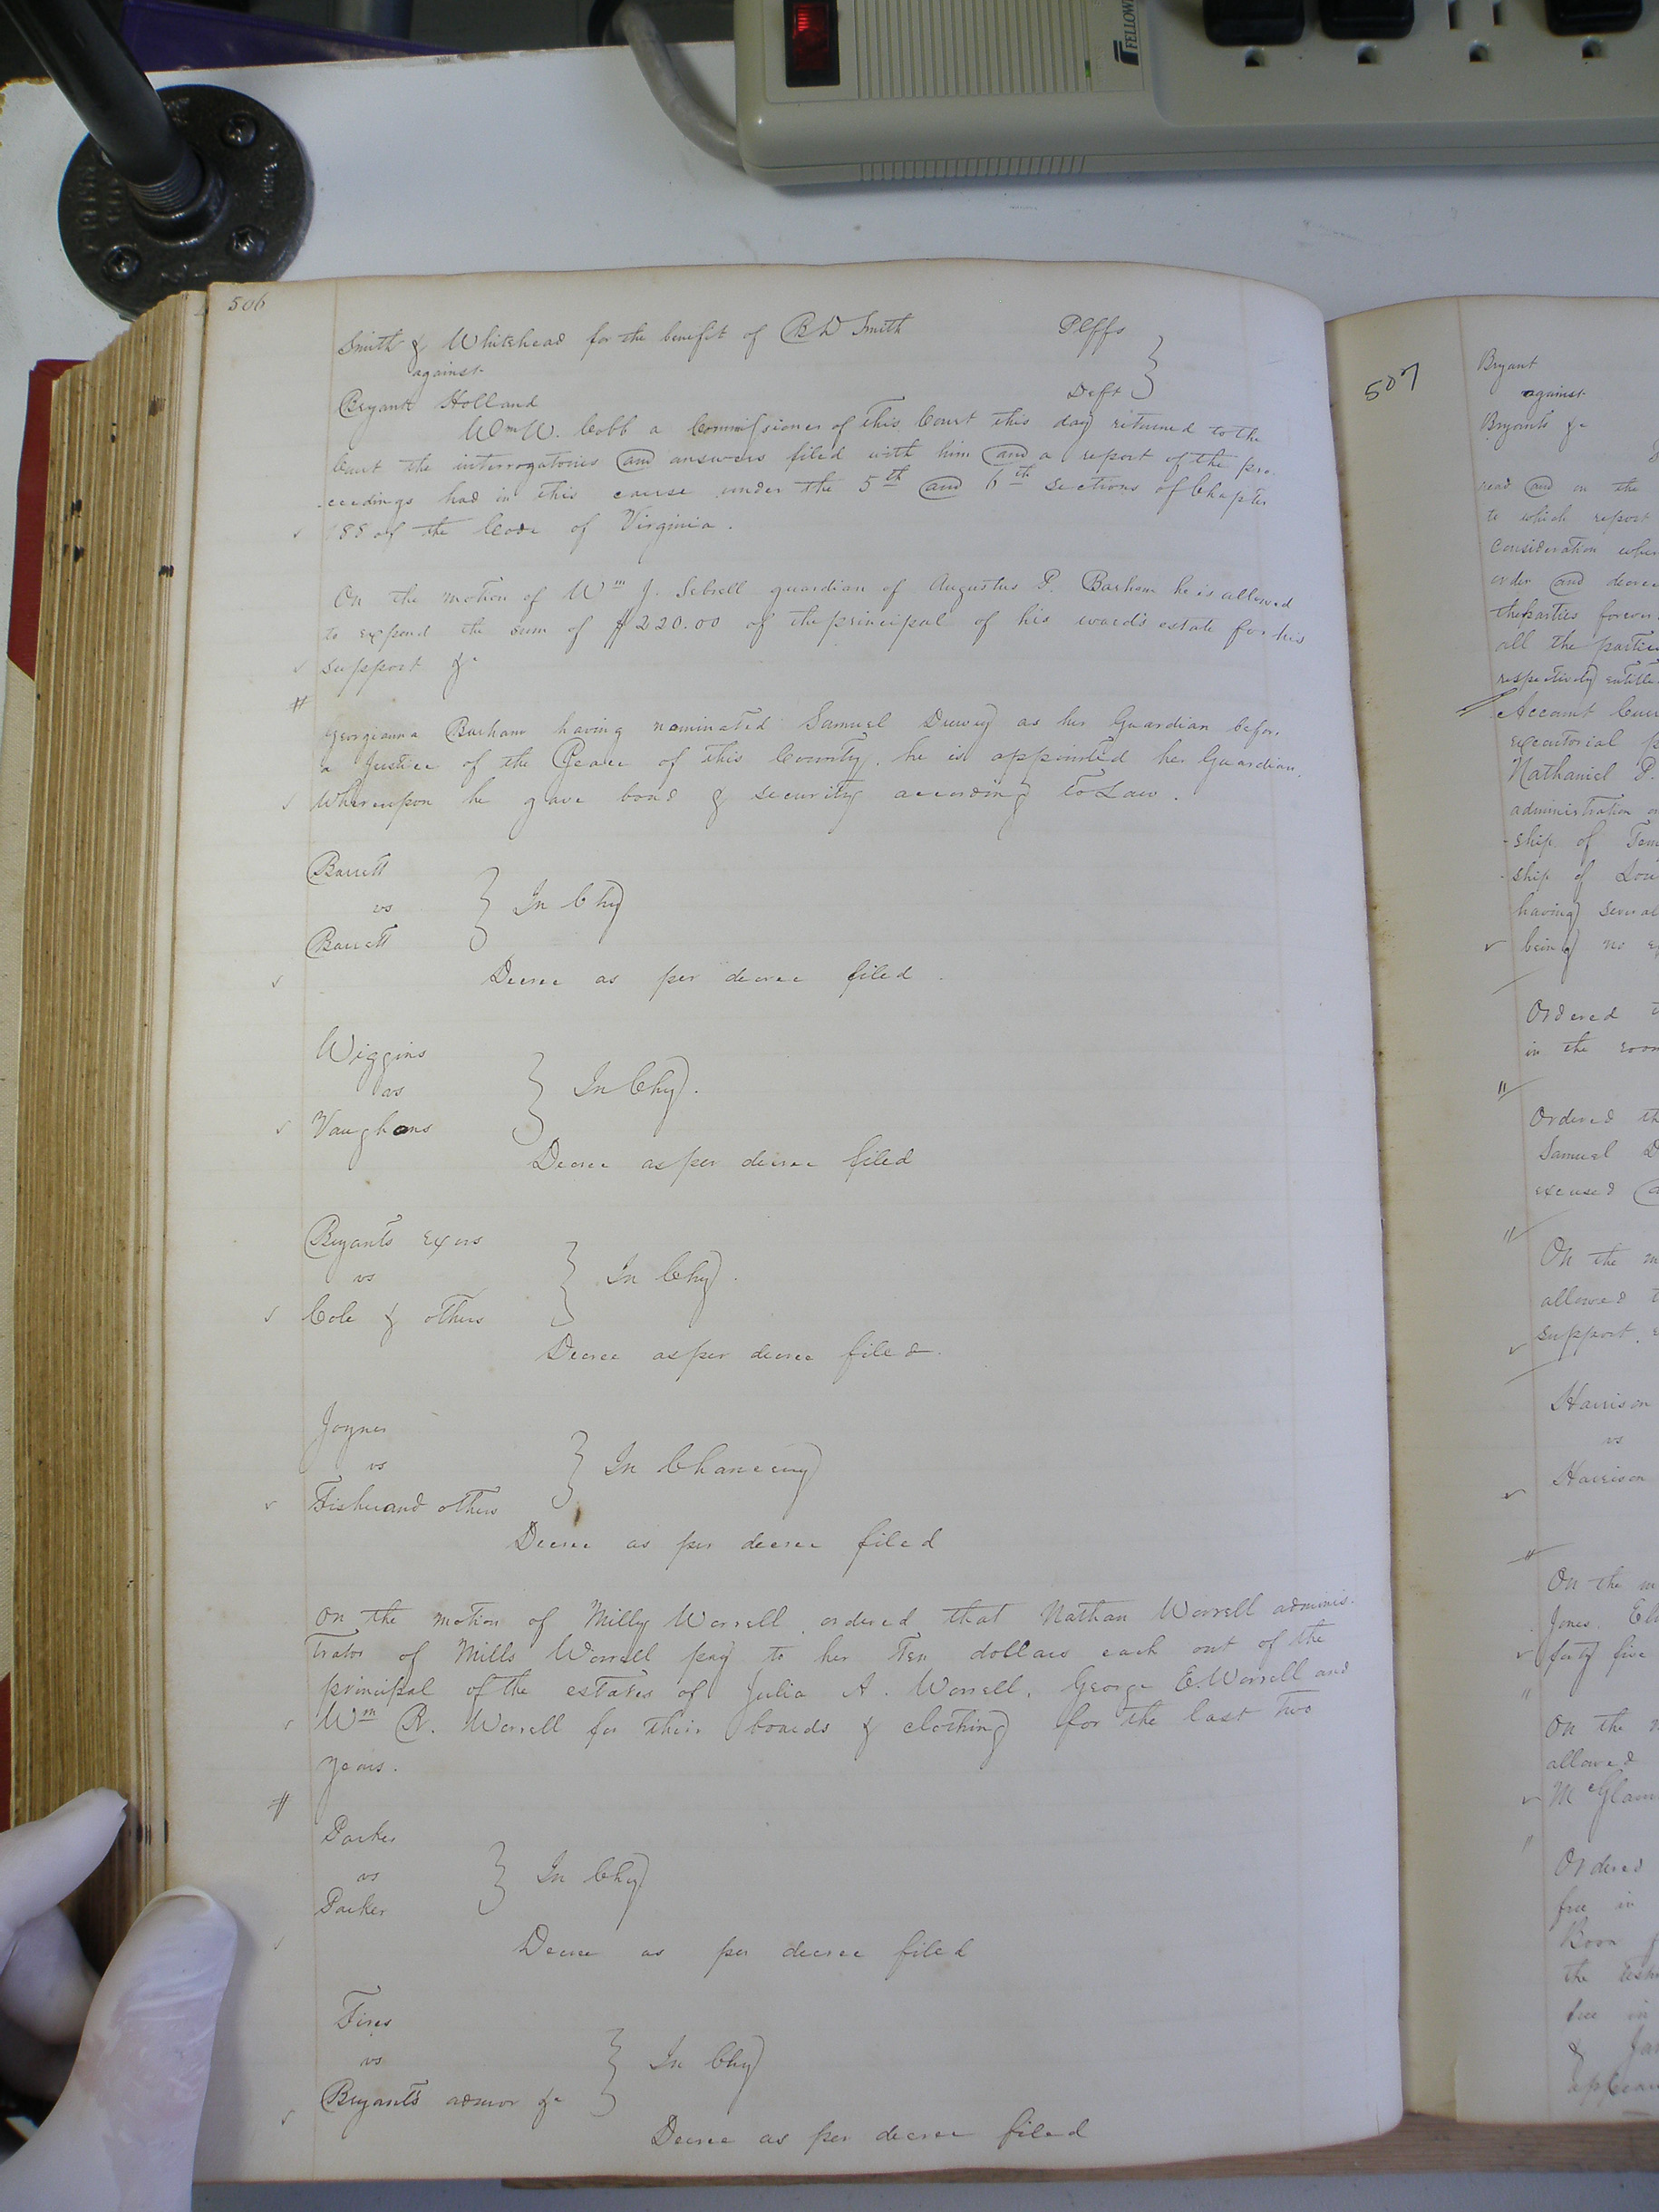 506
Smith & Whitehead for the benefit of B D Smith Plffs
against
Bryant Holland Deft
Wm W. Cobb a Commissioner of this Court this day returned to the
Court the interrogatories and answers filed with him and a report of the pro-
-ceedings had in this cause under the 5th and 6th sections of Chapter
188 of the Code of Virginia.
On the motion of Wm J. Sebrell guardian of Augustus P. Barham he is allowed
to expend the sum of $220.00 of the principal of his wards estate for his
support &c
Georgianna Barham having nominated Samuel Drewry as her Guardian before
a Justice of the Peace of this County, he is appointed her Guardian,
Whereupon he gave bond & security according to Law.
Barrett
vs
Barrett
In Chy
Decree as per decree filed.
Wiggins
vs
Vaughans
In Chy.
Decree as per decree filed
Bryants exors
vs
Cole & others
In Chy.
Decree as per decree filed.
Joyner
vs
Fisher and others
In Chancery
Decree as per decree filed
On the motion of Milly Worrell, ordered that Nathan Worrell adminis-
trator of Mills Worrell pay to her Ten dollars each out of the
principal of the estates of Julia A. Worrell, George E Worrell and
Wm R. Worrell for their boards & clothing for the last two
years.
Parker
vs
Parker
In Chy
Decree as per decree filed
Fires
vs
Bryants admor &c
In Chy
Decree as per decree filed
507
Bryant
against
Bryants &c
read and on the
to which report
consideration
order and
the parties
all the
respectively
Account
executorial
Nathaniel P.
administration
-ship of
-ship of
having
being no
Ordered
in the room
Ordered
Samuel
excused
On the
allowed
support
Harrison
vs
Harrison
On the
Jones.
forty five
On the
allowed
Ordered
free in
the
free in
&
FELLOW